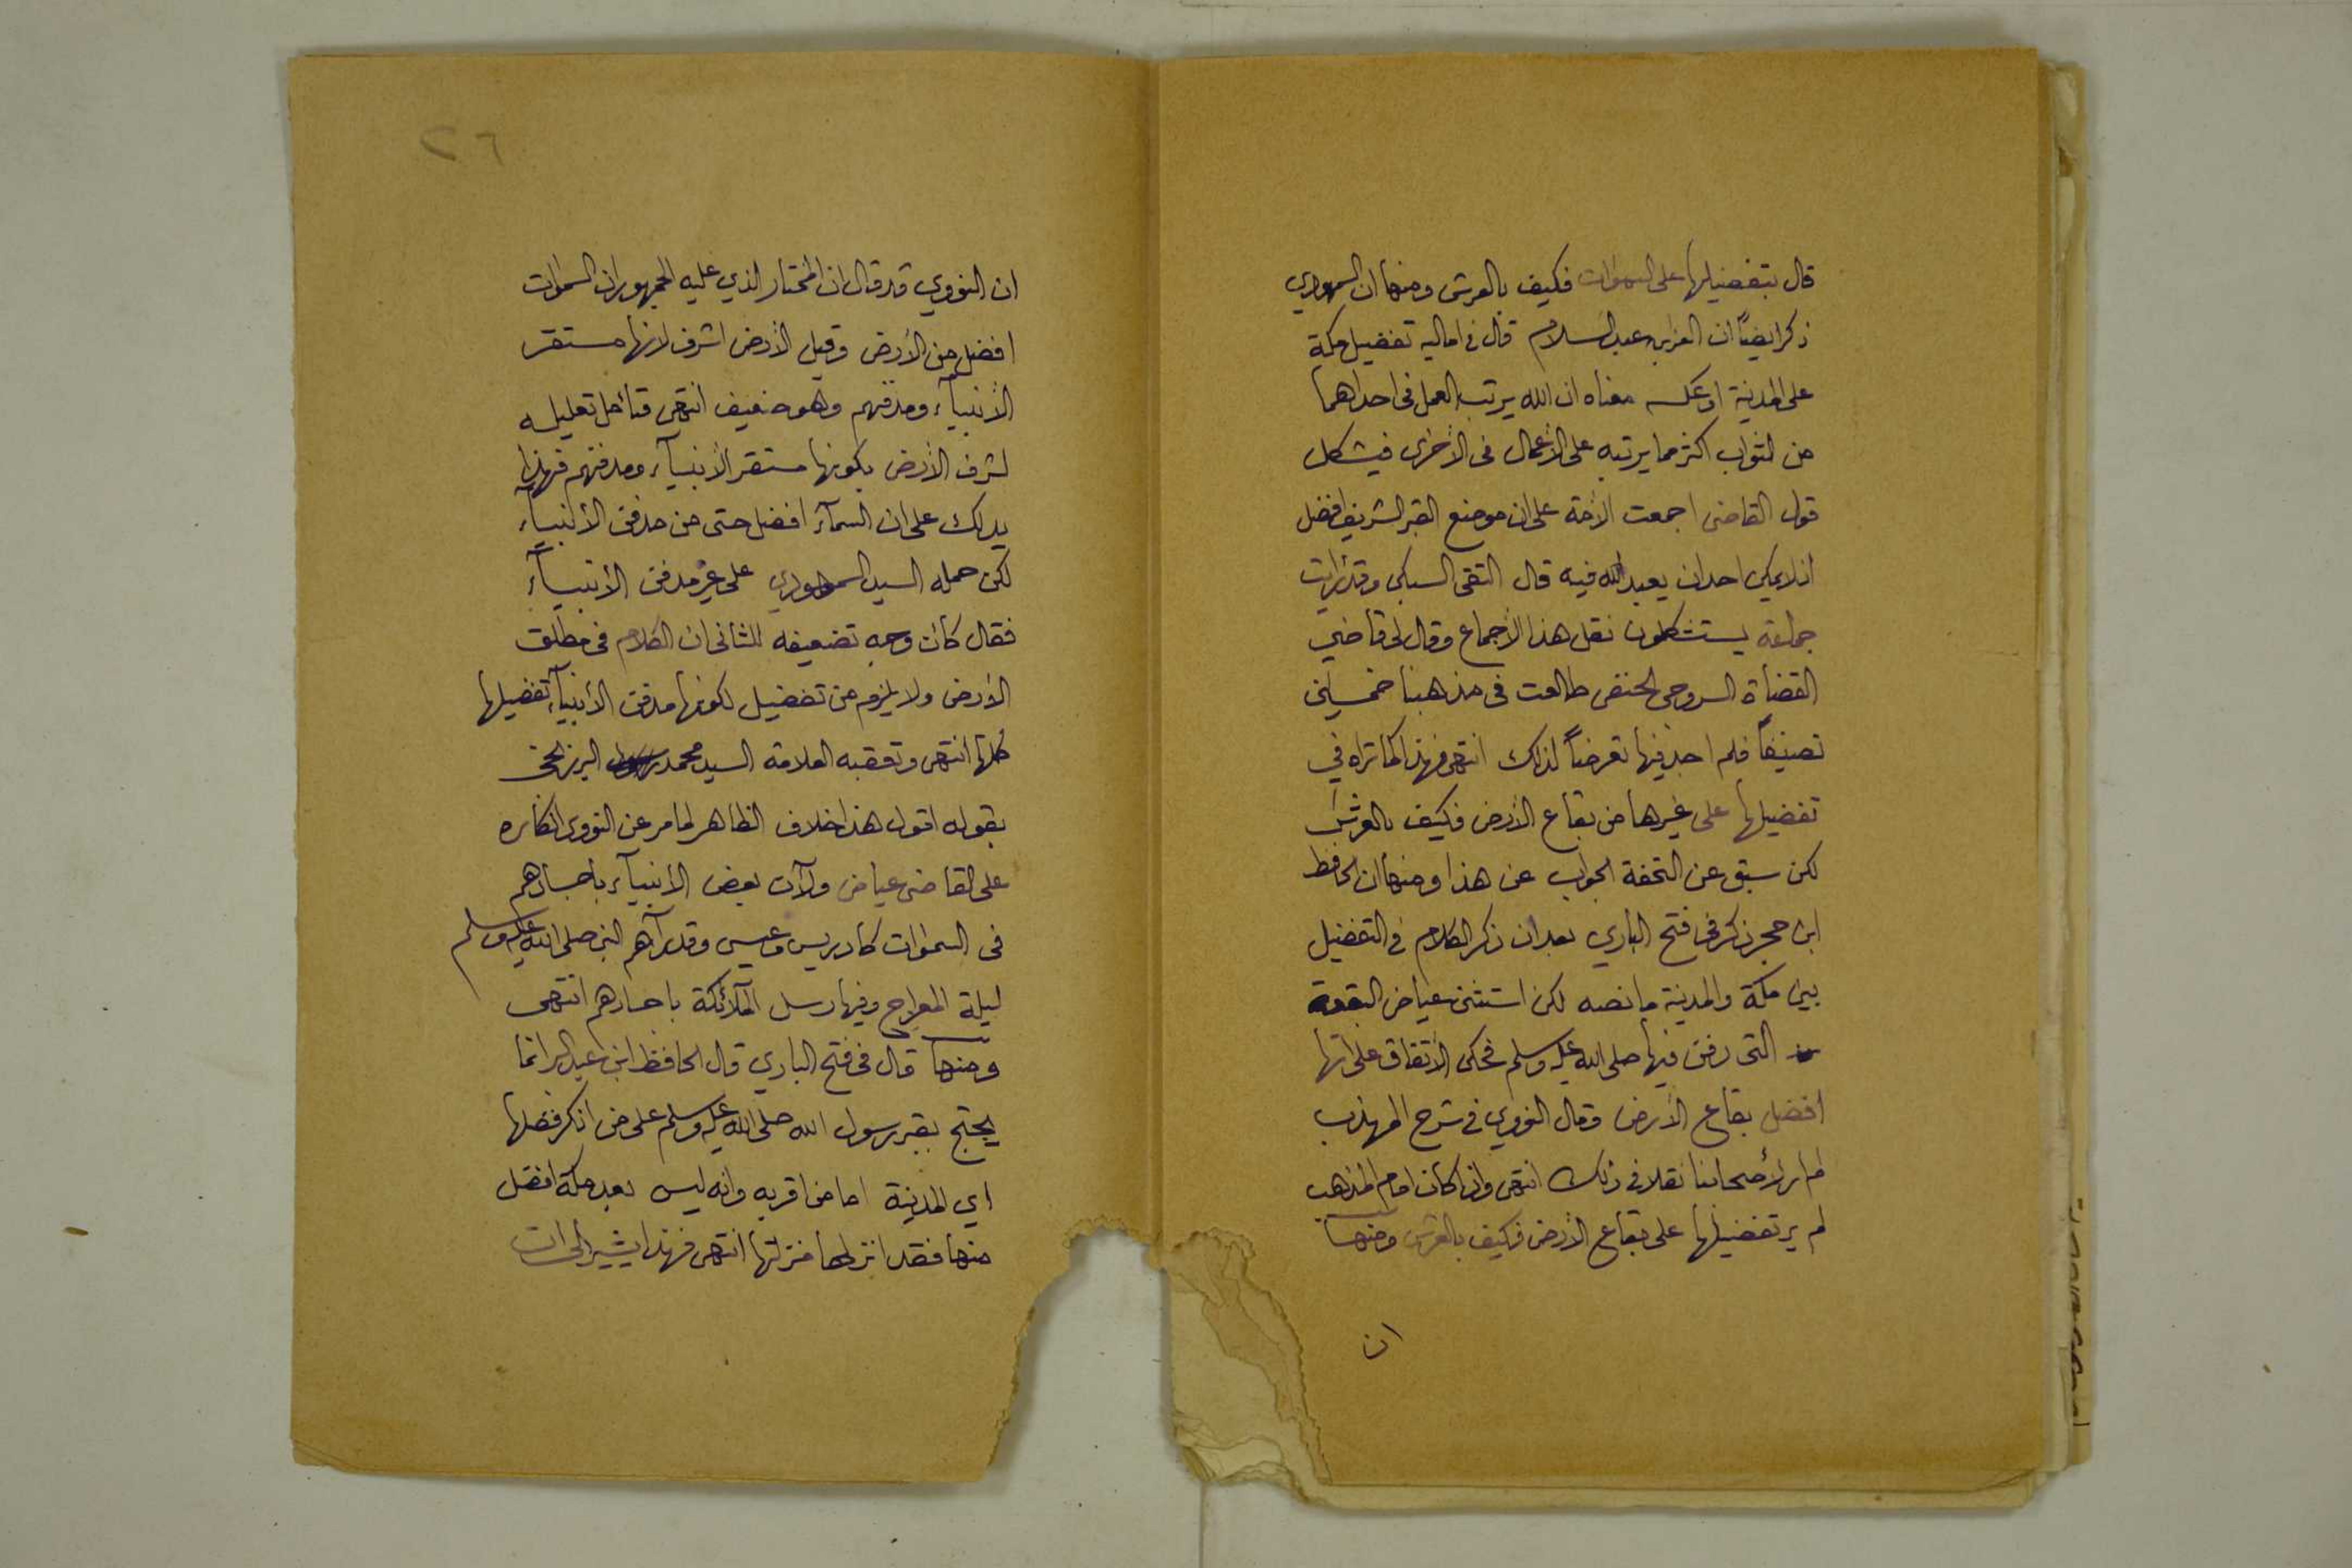 قال بتفضيلها على السموات فكيف بالعرش ومنها ان السمهودي
ذكر ايضاً ان العز بن عبد السلام قال في اماليه تفضيل مكة
على المدينة او عكسه معناه ان الله يرتب العمل في احداهما
من الثواب اكثر مما يرتبه على الأعمال في الأخرى فيشكل
قول القاضي اجمعت الأمة على ان موضع القبر الشريف افضل
اذ لا يمكن احد ان يعبد الله فيه قال التقي السبكي وقد رأيت
جماعة يستشكلون نقل هذا الأجماع وقال لي قاضي
القضاة السروجي الحنفي طالعت في مذهبنا خمسين
تصنيفاً فلم اجد فيها تعرضاً لذلك انتهى فهذا كما تراه في
تفضيلها على غيرها من بقاع الأرض فكيف بالعرش
لكن سبق عن التحفة الجواب عن هذا ومنها ان الحافظ
ابن حجر ذكر في فتح الباري بعد ان ذكر الكلام في التفضيل
بين مكة والمدينة ما نصه لكن استثنى عياض البقعة
التى دفن فيها صلى الله عليه وسلم فحكى الأتفاق على انها
افضل بقاع الأرض وقال النووي في شرح المهذب
لم ار لأصحابنا نقلا في ذلك انتهى واذا كان امام المذهب
لم ير تفضيلها على بقاع الأرض فكيف بالعرش ومنها
ان
٢٦
ان النووي قد قال ان المختار الذي عليه الجمهور ان السموات
افضل من الأرض وقيل الأرض اشرف لانها مستقر
الأنبيآء ومدفنهم وهو ضعيف انتهى فتأمل تعليله
لشرف الأرض بكونها مستقر الأنبيآء ومدفنهم فهذا
يدلك على ان السمآء افضل حتى من مدفن الأنبيآء
لكن حمله السيد السمهودي على غير مدفن الأنبيآء
فقال كأن وجه تضعيفه للثاني ان الكلام في مطلق
الأرض ولا يلزم من تفضيل لكونها مدفن الأنبيآء تفضيلها
كلها انتهى وتعقبه العلامة السيد محمد رسول البرزنجي
بقوله اقول هذا خلاف الظاهر لما مر عن النووي انكاره
على القاضي عياض ولآن بعض الأنبيآء بأجسادهم
في السموات كادريس وعيسى وقد رآهم النبي صلى الله عليه وسلم
ليلة المعراج وفيها رسل الملآئكة باجسادهم انتهى
ومنها قال في فتح الباري قال الحافظ ابن عبد البر انما
يحتج بقبر رسول الله صلى الله عليه وسلم على من انكر فضلها
اي المدينة اما من اقر به وانه ليس بعد مكة افضل
منها فقد انزلها منزلتها انتهى فهذا يشير الى ان